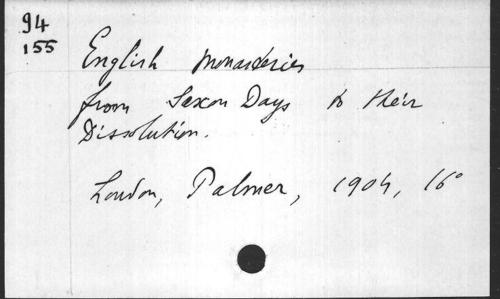 94
155
English Monasteries
from Saxon Days to their
Dissolution.
London, Palmer, 1904, 16°